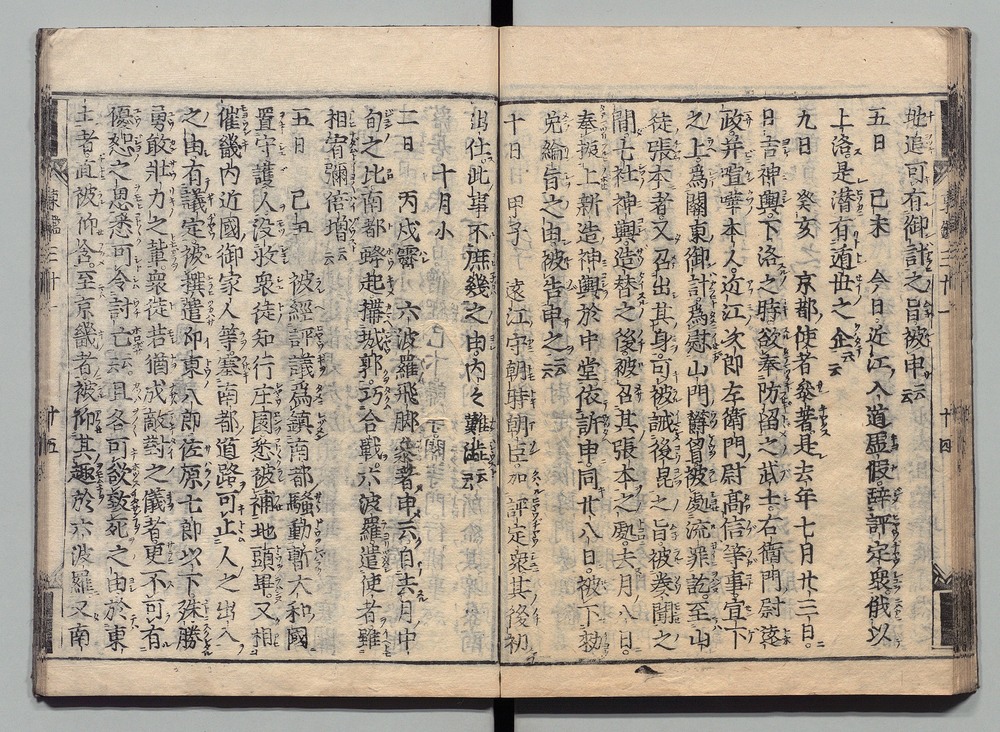 地追可有御計之旨被申云云
五日 己未 今日近江入道虚假辞評定衆俄以
上洛是潜有遁世之企云云
九日 癸亥 京都使者參著是去年七月廿三日
日吉神輿下洛之時欲奉防留之武士右衛門尉遠
政并喧嘩本人近江次郎左衛門尉高信等事宣下
之上爲關東御計爲慰山門欝曽被處流罪訖至山
徒張本者又召出其身可被誡後昆之旨被奏聞之
間七社神輿造替之後被召其張本之處去月八日
奉振上新造神輿於中堂依訴申同廿八日被下勅
免綸旨之由被告申之云云
十日 甲子 遠江守朝時朝臣加評定衆其後初
出仕此事不庶幾之由内々難澁云云
十月小
二日 丙戌霽 六波羅飛脚參著申云自去月中
旬之比南都蜂起搆城郭巧合戰六波羅遣使者雖
相宥彌倍増云云
五日 己丑 被經評議爲鎭南都騷動暫大和國
置守護人没收衆徒知行庄園悉被補地頭畢又相
催畿内近國御家人等塞南都道路可止人之出入
之由有議定被撰遣仰東八郎佐原七郎以下殊勝
勇敢壯力之輩衆徒若猶成敵對之儀者更不可有
優恕之思悉可令討亡云云且各可致敢死之由於東
士者直被仰含至京畿者被仰其趣於六波羅又南
東鑑三十一 十四
東鑑三十一 十五